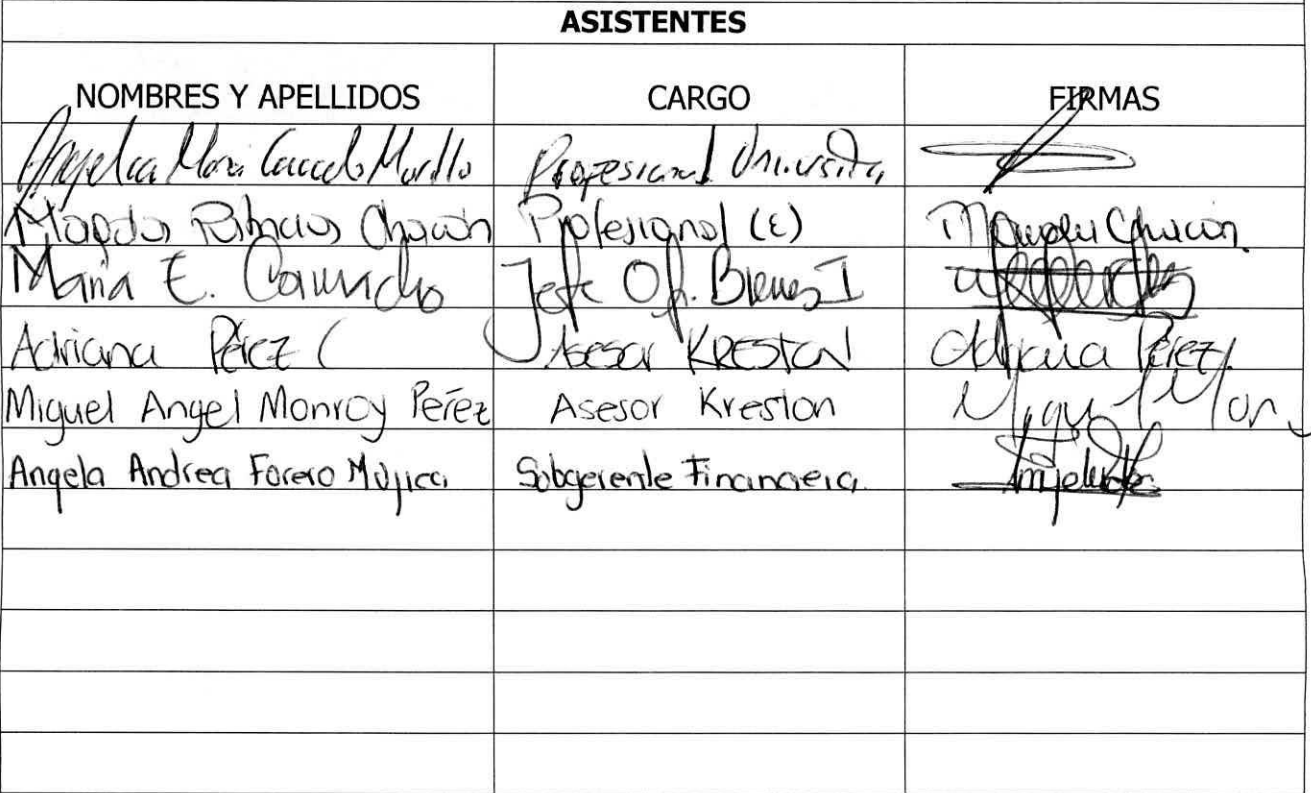 ASISTENTES
NOMBRES Y APELLIDOS CARGO FIRMAS
Angelica Profesional Universita
Chacón Profesional (E) Chacon
Maria E. Camacho Jefe Of. Bienes I
Adriana Pérez C Asesor KRESTON Adriana Pérez
Miguel Angel Monroy Pérez Asesor Kreston Miguel Mon
Angela Andrea Forero Mojica Subgerente Financiera